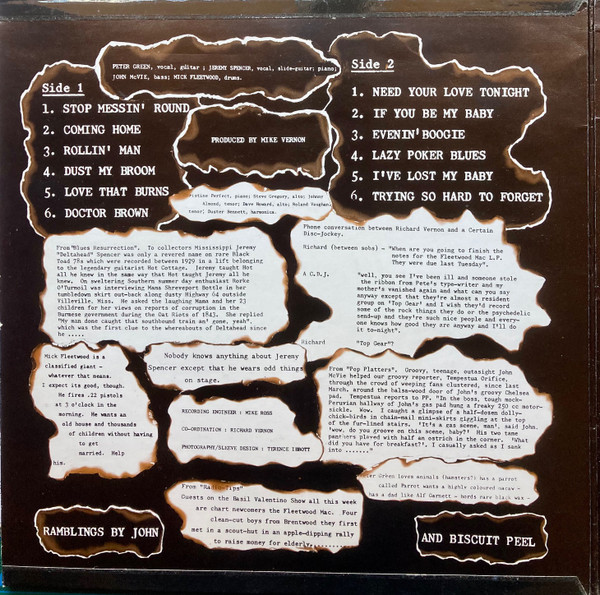 PETER GREEN, vocal, guitar ; JEREMY SPENCER, vocal, slide-guitar; piano;
JOHN McVIE, bass; MICK FLEETWOOD, drums.
Side 1
1. STOP MESSIN' ROUND
2. COMING HOME
3. ROLLIN' MAN
4. DUST MY BROOM
5. LOVE THAT BURNS
6. DOCTOR BROWN
PRODUCED BY MIKE VERNON
Side 2
1. NEED YOUR LOVE TONIGHT
2. IF YOU BE MY BABY
3. EVENIN' BOOGIE
4. LAZY POKER BLUES
5. I'VE LOST MY BABY
6. TRYING SO HARD TO FORGET
Perfect, piano; Steve Gregory, alto; Johnny
Almond, tenor; Dave Howard, alto; Roland Vaughan,
tenor; Duster Bennett, harmonica.
From "Blues Resurrection". To collectors Mississippi Jeremy
"Deltahead" Spencer was only a revered name on rare Black
Toad 78s which were recorded between 1929 in a lift belonging
to the legendary guitarist Hot Cottage. Jeremy taught Hot
all he knew in the same way that Hot taught Jeremy all he
knew. On sweltering Southern summer day enthusiast Rorke
O'Turmoil was interviewing Mama Shreveport Bettle in her
tumbledown skirt out-back along dusty Highway 64 outside
Villerville, Miss. He asked the laughing Mama and her 23
children for her views on reports of corruption in the
Burmese government during the Oat Riots of 1843. She replied
"My man done caught that southbound train an' gone, yeah",
which was the first clue to the whereabouts of Deltahead since
he .....
Phone conversation between Richard Vernon and a Certain
Disc-Jockey.
Richard (between sobs) - "When are you going to finish the
notes for the Fleetwood Mac L.P.
They were due last Tuesday".
A C.D.J. "well, you see I've been ill and someone stole
the ribbon from Pete's type-writer and my
mother's vanished again and what can you say
anyway except that they're almost a resident
group on 'Top Gear' and I wish they'd record
some of the rock things they do or the psychedelic
send-up and they're such nice people and every-
one knows how good they are anyway and I'll do
it to-night".
Richard "Top Gear"?
Mick Fleetwood is a
classified giant -
whatever that means.
I expect its good, though.
He fires .22 pistols
at 3 o'clock in the
morning. He wants an
old house and thousands
of children without having
to get
married. Help
him.
Nobody knows anything about Jeremy
Spencer except that he wears odd things
on stage.
RECORDING ENGINEER : MIKE ROSS
CO-ORDINATION : RICHARD VERNON
PHOTOGRAPHY/SLEEVE DESIGN : TERENCE IBBOTT
From "Pop Platters". Groovy, teenage, outasight John
McVie helped our groovy reporter, Tempestua Orifice,
through the crowd of weeping fans clustered, since last
March, around the balsa-wood door of John's groovy Chelsea
pad. Tempestua reports to PP. "In the boss, tough mock-
Peruvian hallway of John's gas pad hung a freaky 250 cc motor-
sickle. Wow. I caught a glimpse of a half-dozen dolly-
chick-birds in chain-mail mini-skirts giggling at the top
of the fur-lined stairs. 'It's a gas scene, man', said John.
'wow, do you groove on this scene, baby?' His two tame
panthers played with half an ostrich in the corner. 'What
did you have for breakfast?', I casually asked as I sank
into ......."
Green loves animals (hamsters?) has a parrot
called Parrot wants a highly coloured macaw -
has a dad like Alf Garnett - hords rare black wax -
From "Radio-Tips"
Guests on the Basil Valentino Show all this week
are chart newcomers the Fleetwood Mac. Four
clean-cut boys from Brentwood they first
met in a scout-hut in an apple-dipping rally
to raise money for elderly
RAMBLINGS BY JOHN
AND BISCUIT PEEL